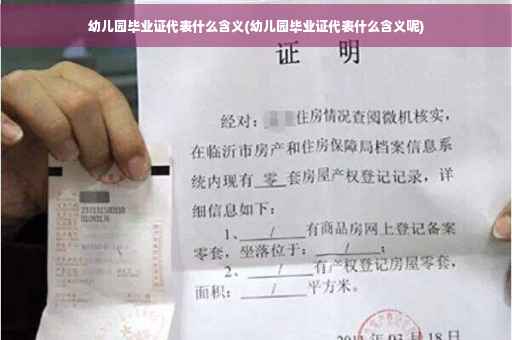 幼儿园毕业证代表什么含义(幼儿园毕业证代表什么含义呢)
证 明
经对：住房情况查阅微机核实，
在临沂市房产和住房保障局档案信息系
统内现有 零 套房屋产权登记记录，详
细信息如下：
1、 / 有商品房网上登记备案
零套，坐落位于： / ；
2、 / 有产权登记房屋零套，
面积： / 平方米。
03月18日